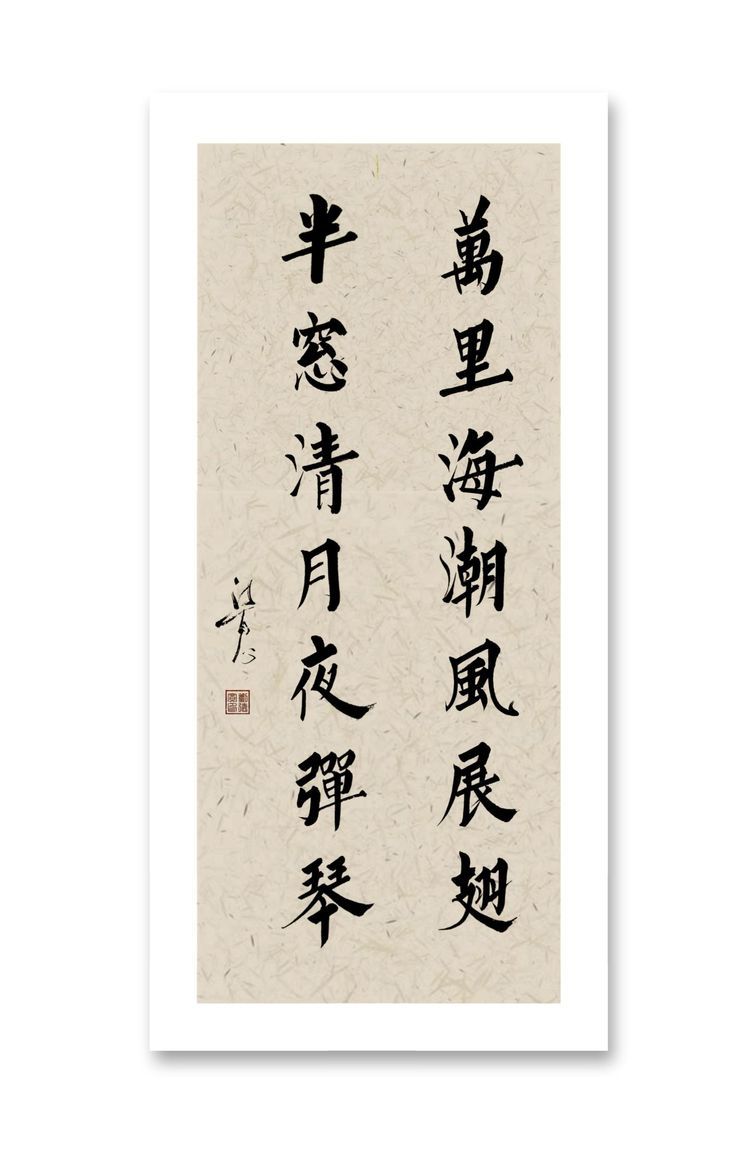 萬里海潮風展翅
半窓清月夜彈琴